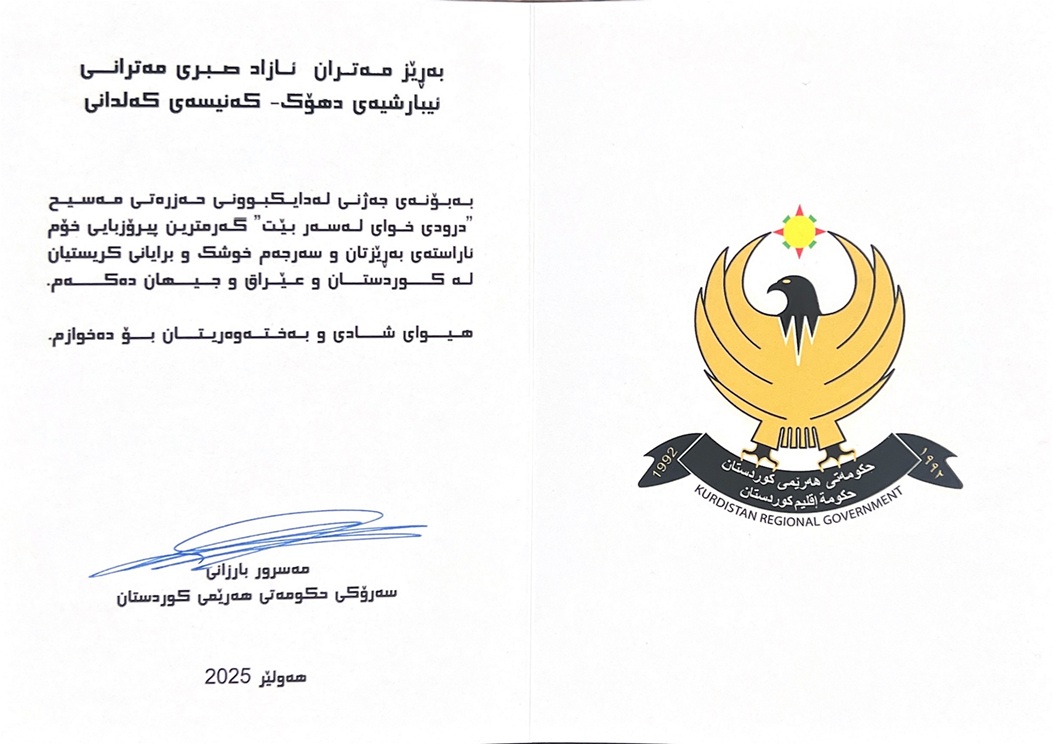 بەڕێز مەتران ئازاد صبری مەترانی
ئیبارشیەی دهۆک- کەنیسەی کەلدانی
بەبۆنەی جەژنی لەدایکبوونی حەزرەتی مەسیح
"درودی خوای لەسەر بێت" گەرمترین پیرۆزبایی خۆم
ئاراستەی بەڕێزتان و سەرجەم خوشک و برایانی کریستیان
لە کوردستان و عێراق و جیهان دەکەم.
هیوای شادی و بەختەوەریتان بۆ دەخوازم.
مەسرور بارزانی
سەرۆکی حکومەتی هەرێمی کوردستان
هەولێر 2025
1992
حكومەتی هەرێمی كوردستان
١٩٩٢
حكومة إقليم كوردستان
KURDISTAN REGIONAL GOVERNMENT